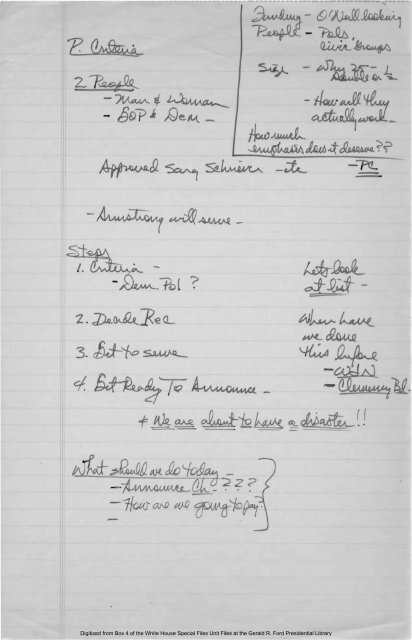 P. Criteria
2 People
- Man & Woman
- GOP & Dem -
Funding - O'Neill looking
People - Pols,
Civic Groups
Size - Why 25 - 1/2
double or 1/2
- How will they
actually work -
How much
emphasis does it deserve??
Approved Sarg Schriever - etc - PC
- Armstrong will serve -
Steps
1. Criteria -
- Dem. Pol ?
Lets look
at list -
2. Decide Rec
3. Get to serve
When have
we done
this before
- WIN
- Clemency Bd -
4. Get Ready To Announce -
+ We are about to have a disaster!!
What should we do today -
- Announce Ch - ???
- How are we going to pay?
-
Digitized from Box 4 of the White House Special Files Unit Files at the Gerald R. Ford Presidential Library